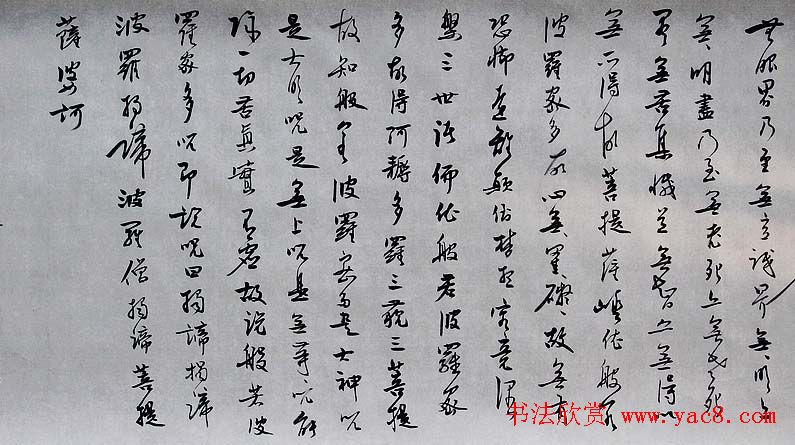 無眼界乃至無意識界無、明亦
無、明盡乃至無老死亦無老死
盡無苦集滅道無智亦無得以
無所得故菩提薩埵依般若
波羅蜜多故心無罣礙、故無有
恐怖遠離顛倒夢想究竟涅
槃三世諸佛依般若波羅蜜
多故得阿耨多羅三藐三菩提
故知般若波羅蜜多是大神咒
是大明咒是無上咒是無等咒能
除一切苦真實不虛故說般若波
羅蜜多咒即說咒曰揭諦揭諦
波羅揭諦波羅僧揭諦菩提
薩婆訶
书法欣赏 www.yac8.com